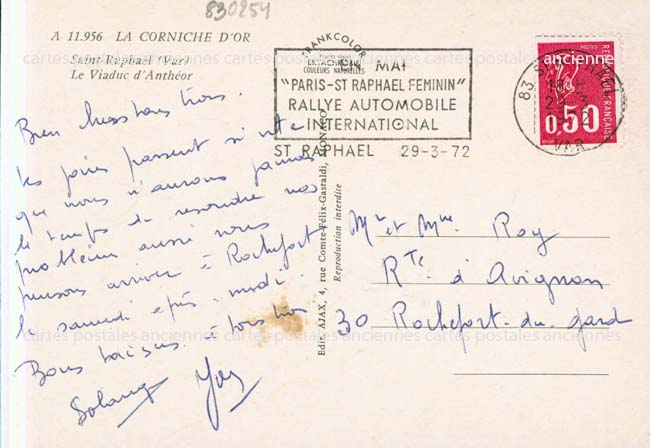 830254
A 11.956 LA CORNICHE D'OR
Saint-Raphaël (Var)
Le Viaduc d'Anthéor
FRANKCOLOR
COULEURS NATURELLES
MAI
"PARIS-ST RAPHAEL FEMININ"
RALLYE AUTOMOBILE
INTERNATIONAL
ST RAPHAEL 29-3-72
83 VAR
POSTES
0,50
REPUBLIQUE FRANÇAISE
Bien chers tous trois.
Les jours passent si vite
que nous n'aurons jamais
le temps de resoudre nos
problèmes aussi nous
pensons arriver à Rochefort
le samedi après-midi.
Bons baisers à tous trois
Solange
Edit. AJAX, 4, rue Comte-Félix-Gastaldi, MONACO
Reproduction interdite
Mr et Mme Roy
Rte d'Avignon
30 Rochefort-du-gard
cartes postales anciennes